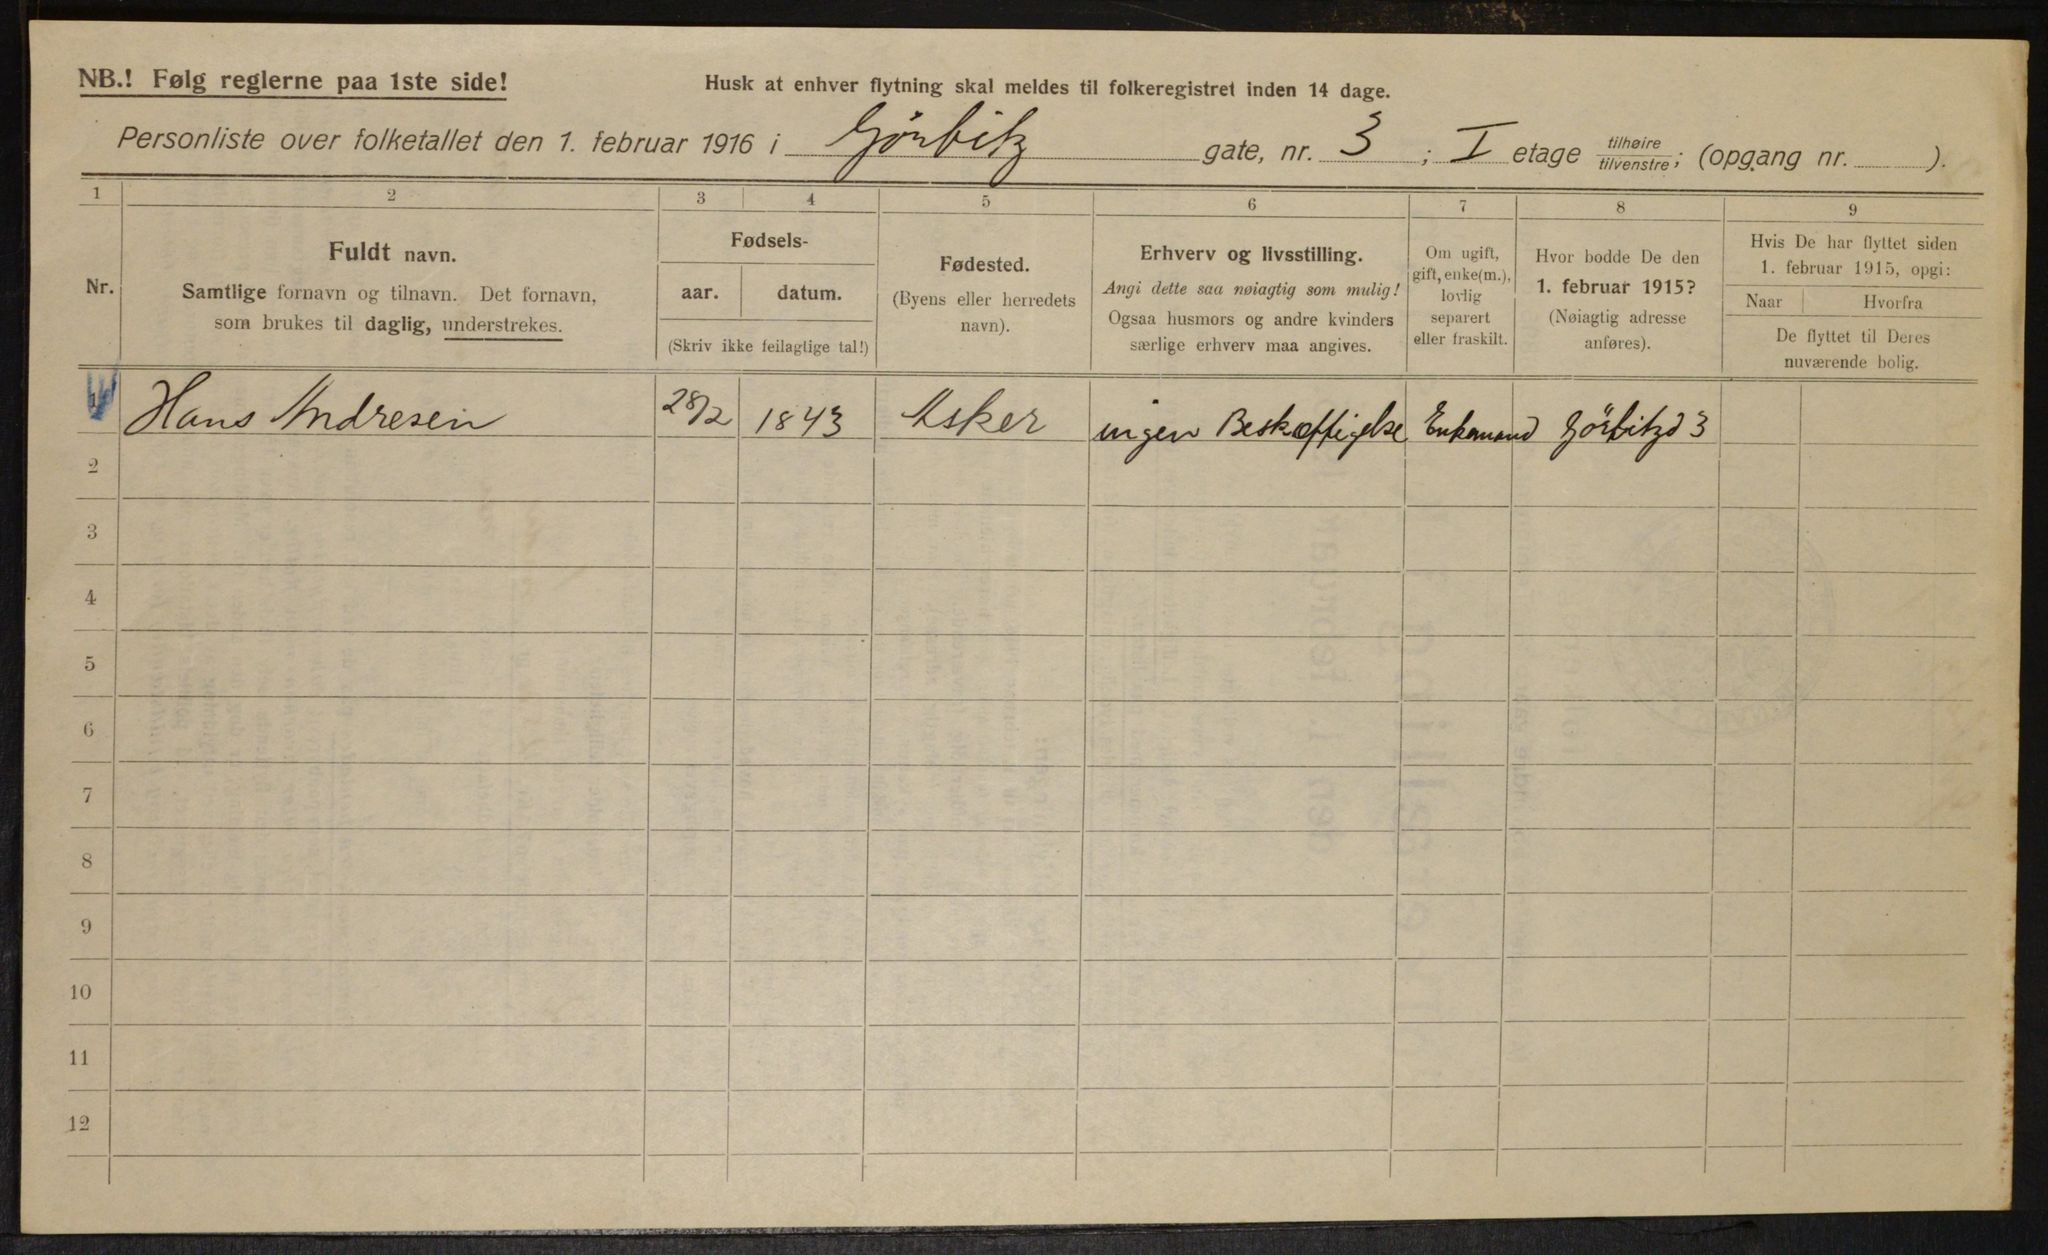 NB.! Følg reglerne paa 1ste side!
Husk at enhver flytning skal meldes til folkeregistret inden 14 dage.
Personliste over folketallet den 1. februar 1916 i Görbitz gate, nr. 3 ; I etage tilhøire/tilvenstre; (opgang nr. ).
1 2 3 4 5 6 7 8 9
Nr.
Fuldt navn.
Samtlige fornavn og tilnavn. Det fornavn,
som brukes til daglig, understrekes.
Fødsels-
aar. datum.
(Skriv ikke feilagtige tal!)
Fødested.
(Byens eller herredets
navn).
Erhverv og livsstilling.
Angi dette saa nøiagtig som mulig!
Ogsaa husmors og andre kvinders
særlige erhverv maa angives.
Om ugift,
gift, enke(m.),
lovlig
separert
eller fraskilt.
Hvor bodde De den
1. februar 1915?
(Nøiagtig adresse
anføres).
Hvis De har flyttet siden
1. februar 1915, opgi:
Naar Hvorfra
De flyttet til Deres
nuværende bolig.
Hans Andresen 28/2 1843 Asker ingen Beskæftigelse Enkemand Görbitzd 3
2
3
4
5
6
7
8
9
10
11
12